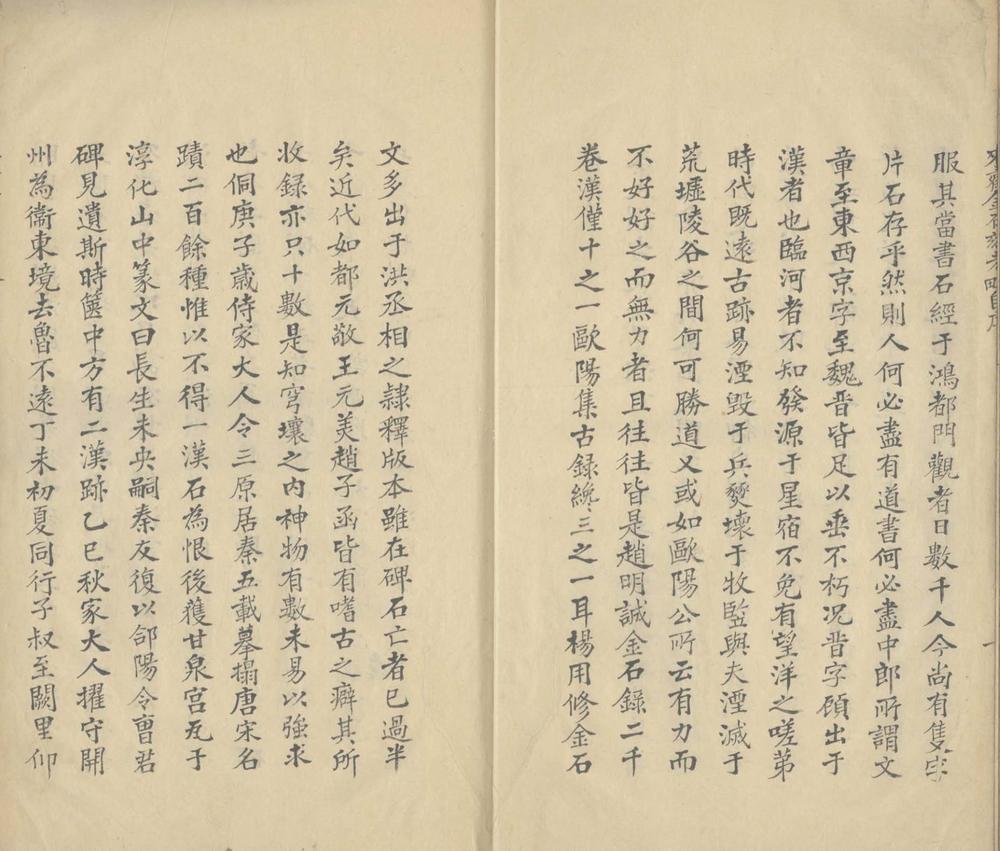 服其當書石經于鴻都門觀者日數千人今尚有隻字
片石存乎然則人何必盡有道書何必盡中郎所謂文
章至東西京字至魏晉皆足以垂不朽况晉字頋出于
漢者也臨河者不知發源于星宿不免有望洋之嗟苐
時代既遠古跡易湮毀于兵燹壞于牧監與夫湮滅于
荒墟陵谷之間何可勝道又或如歐陽公所云有力而
不好好之而無力者且往往皆是趙明誠金石錄二千
卷漢僅十之一歐陽集古録纔三之一耳楊用修金石
文多出于洪丞相之隷釋版本雖在碑石亡者已過半
矣近代如都元敬王元美趙子函皆有嗜古之癖其所
收録亦只十數是知穹壤之内神物有數未易以強求
也侗庚子歲侍家大人令三原居秦五載摹搨唐宋名
蹟二百餘種惟以不得一漢石為恨後獲甘泉宫瓦于
淳化山中篆文曰長生未央嗣秦友復以郃陽令曺君
碑見遺斯時篋中方有二漢跡乙巳秋家大人擢守開
州為衞東境去魯不遠丁未初夏同行子叔至闕里仰